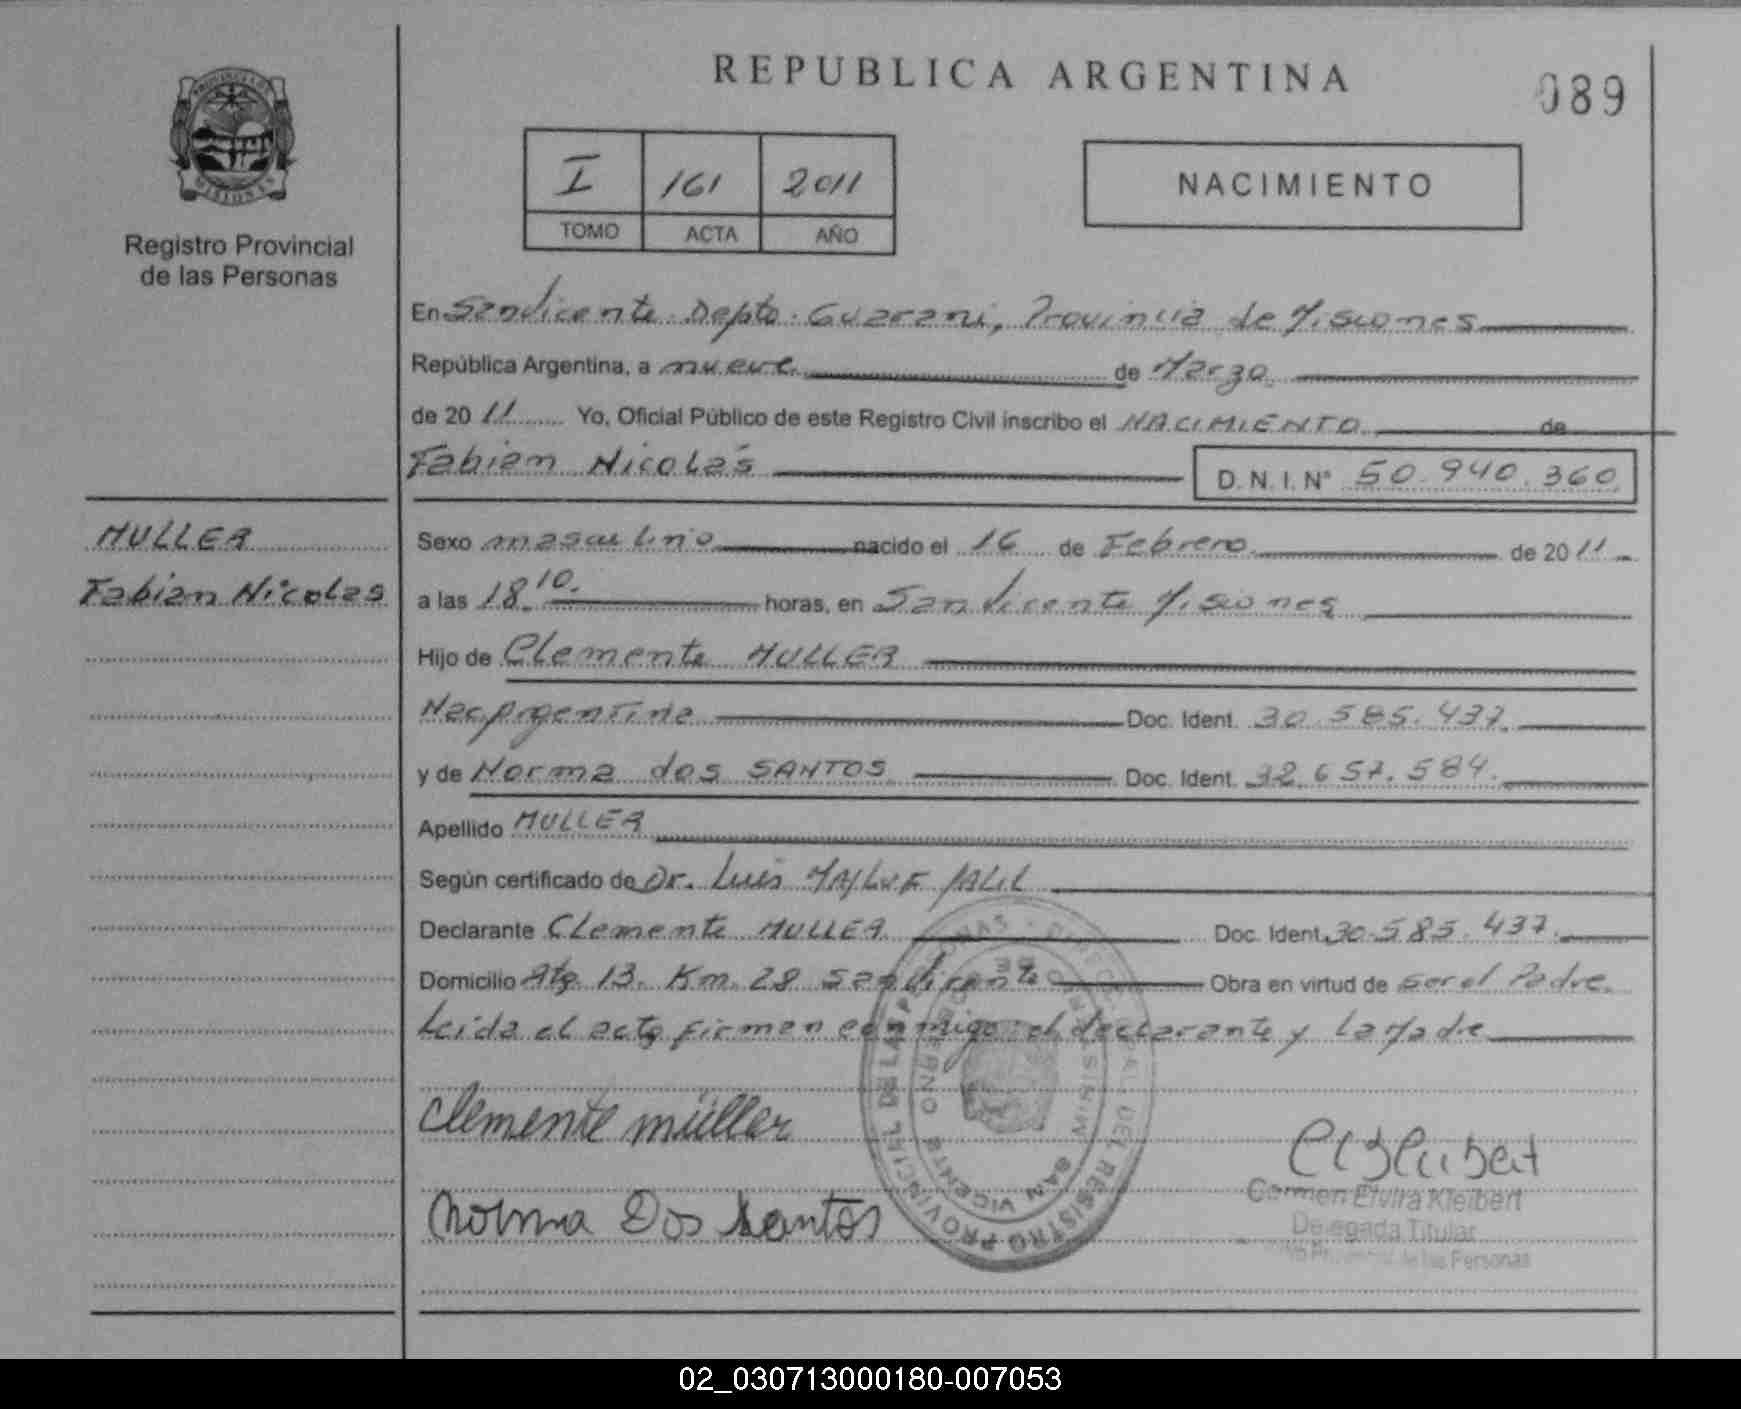 REPUBLICA ARGENTINA
089
I 161 2011
TOMO ACTA AÑO
NACIMIENTO
Registro Provincial
de las Personas
En San Vicente Depto. Guarani, Provincia de Misiones
República Argentina, a nueve de Marzo
de 2011 Yo, Oficial Público de este Registro Civil inscribo el NACIMIENTO de
Fabian Nicolás D.N.I. N° 50.940.360
MULLER
Fabian Nicolas
Sexo masculino nacido el 16 de Febrero de 2011
a las 18.10. horas, en San Vicente Misiones
Hijo de Clemente MULLER
Nac Argentina Doc. Ident. 30.585.437.
y de Norma dos SANTOS Doc. Ident. 32.657.584.
Apellido MULLER
Según certificado de Dr. Luis JALIL
Declarante Clemente MULLER Doc. Ident. 30.585.437.
Domicilio Km. 28 San Vicente Obra en virtud de ser el Padre.
Leida el acta firman conmigo el declarante y la Madre
Clemente müller
Norma Dos Santos
PROVINCIAL DE LAS PERSONAS
DEL REGISTRO
SAN VICENTE
MISIONES
Carmen Elvira Kleibert
Delegada Titular
de las Personas
02_030713000180-007053